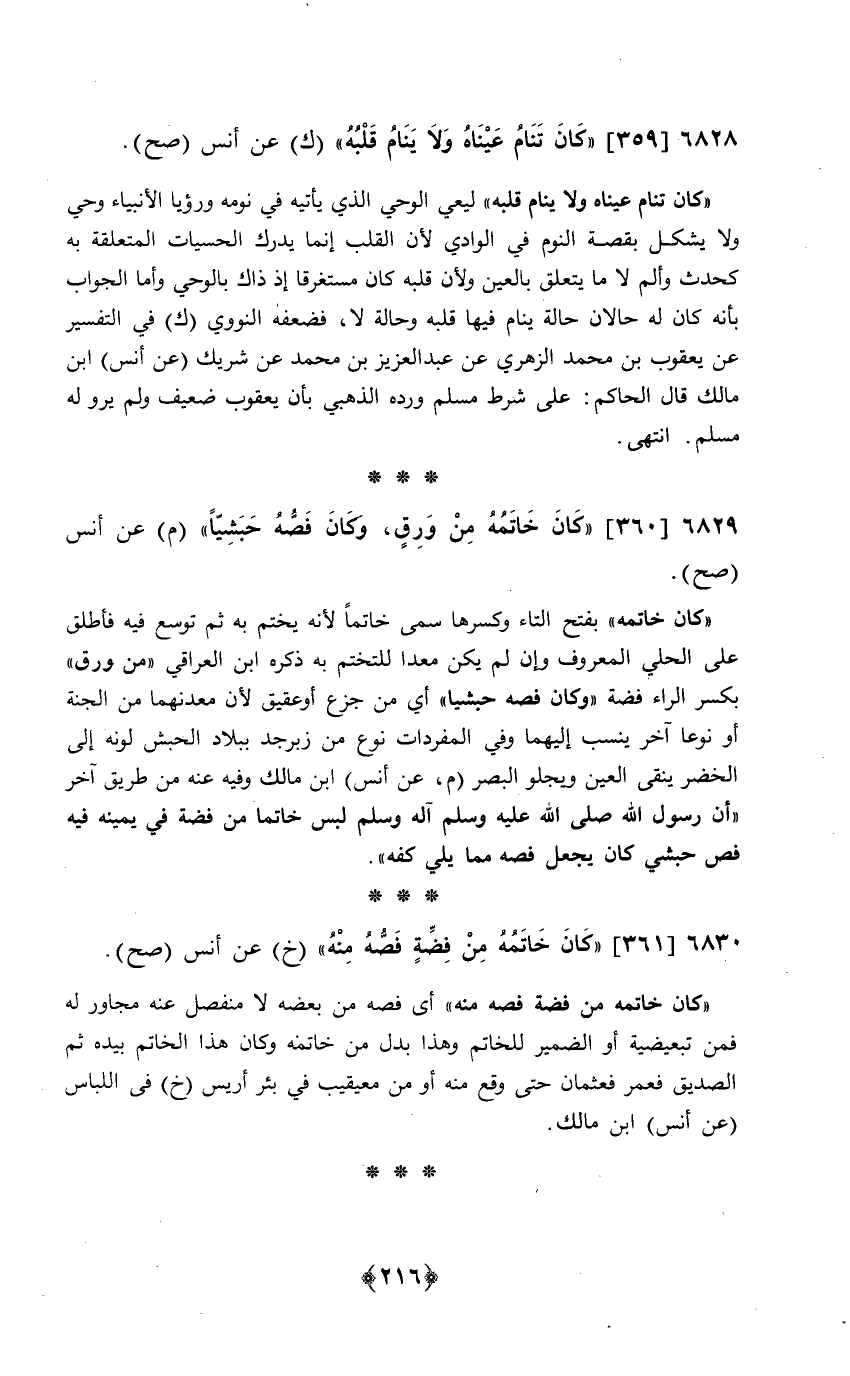 ٦٨٢٨ [٣٥٩] «كَانَ تَنَامُ عَيْنَاهُ وَلاَ يَنَامُ قَلْبُهُ» (ك) عن أنس (صح).
«كان تنام عيناه ولا ينام قلبه» ليعي الوحي الذي يأتيه في نومه ورؤيا الأنبياء وحي
ولا يشكل بقصة النوم في الوادي لأن القلب إنما يدرك الحسيات المتعلقة به
كحدث وألم لا ما يتعلق بالعين ولأن قلبه كان مستغرقا إذ ذاك بالوحي وأما الجواب
بأنه كان له حالان حالة ينام فيها قلبه وحالة لا، فضعفه النووي (ك) في التفسير
عن يعقوب بن محمد الزهري عن عبدالعزيز بن محمد عن شريك (عن أنس) ابن
مالك قال الحاكم: على شرط مسلم ورده الذهبي بأن يعقوب ضعيف ولم يرو له
مسلم. انتهى.
* * *
٦٨٢٩ [٣٦٠] «كَانَ خَاتَمُهُ مِنْ وَرِقٍ، وَكَانَ فَصُّهُ حَبَشِيّاً» (م) عن أنس
(صح).
«كان خاتمه» بفتح التاء وكسرها سمى خاتماً لأنه يختم به ثم توسع فيه فأطلق
على الحلي المعروف وإن لم يكن معدا للتختم به ذكره ابن العراقي «من ورق»
بكسر الراء فضة «وكان فصه حبشيا» أي من جزع أوعقيق لأن معدنهما من الجنة
أو نوعا آخر ينسب إليهما وفي المفردات نوع من زبرجد ببلاد الحبش لونه إلى
الخضر ينقى العين ويجلو البصر (م، عن أنس) ابن مالك وفيه عنه من طريق آخر
«أن رسول الله صلى الله عليه وسلم آله وسلم لبس خاتما من فضة في يمينه فيه
فص حبشي كان يجعل فصه مما يلي كفه».
* * *
٦٨٣٠ [٣٦١] «كَانَ خَاتَمُهُ مِنْ فِضَّةٍ فَصُّهُ مِنْهُ» (خ) عن أنس (صح).
«كان خاتمه من فضة فصه منه» أى فصه من بعضه لا منفصل عنه مجاور له
فمن تبعيضية أو الضمير للخاتم وهذا بدل من خاتمه وكان هذا الخاتم بيده ثم
الصديق فعمر فعثمان حتى وقع منه أو من معيقيب في بئر أريس (خ) فى اللباس
(عن أنس) ابن مالك.
* * *
﴿٢١٦﴾